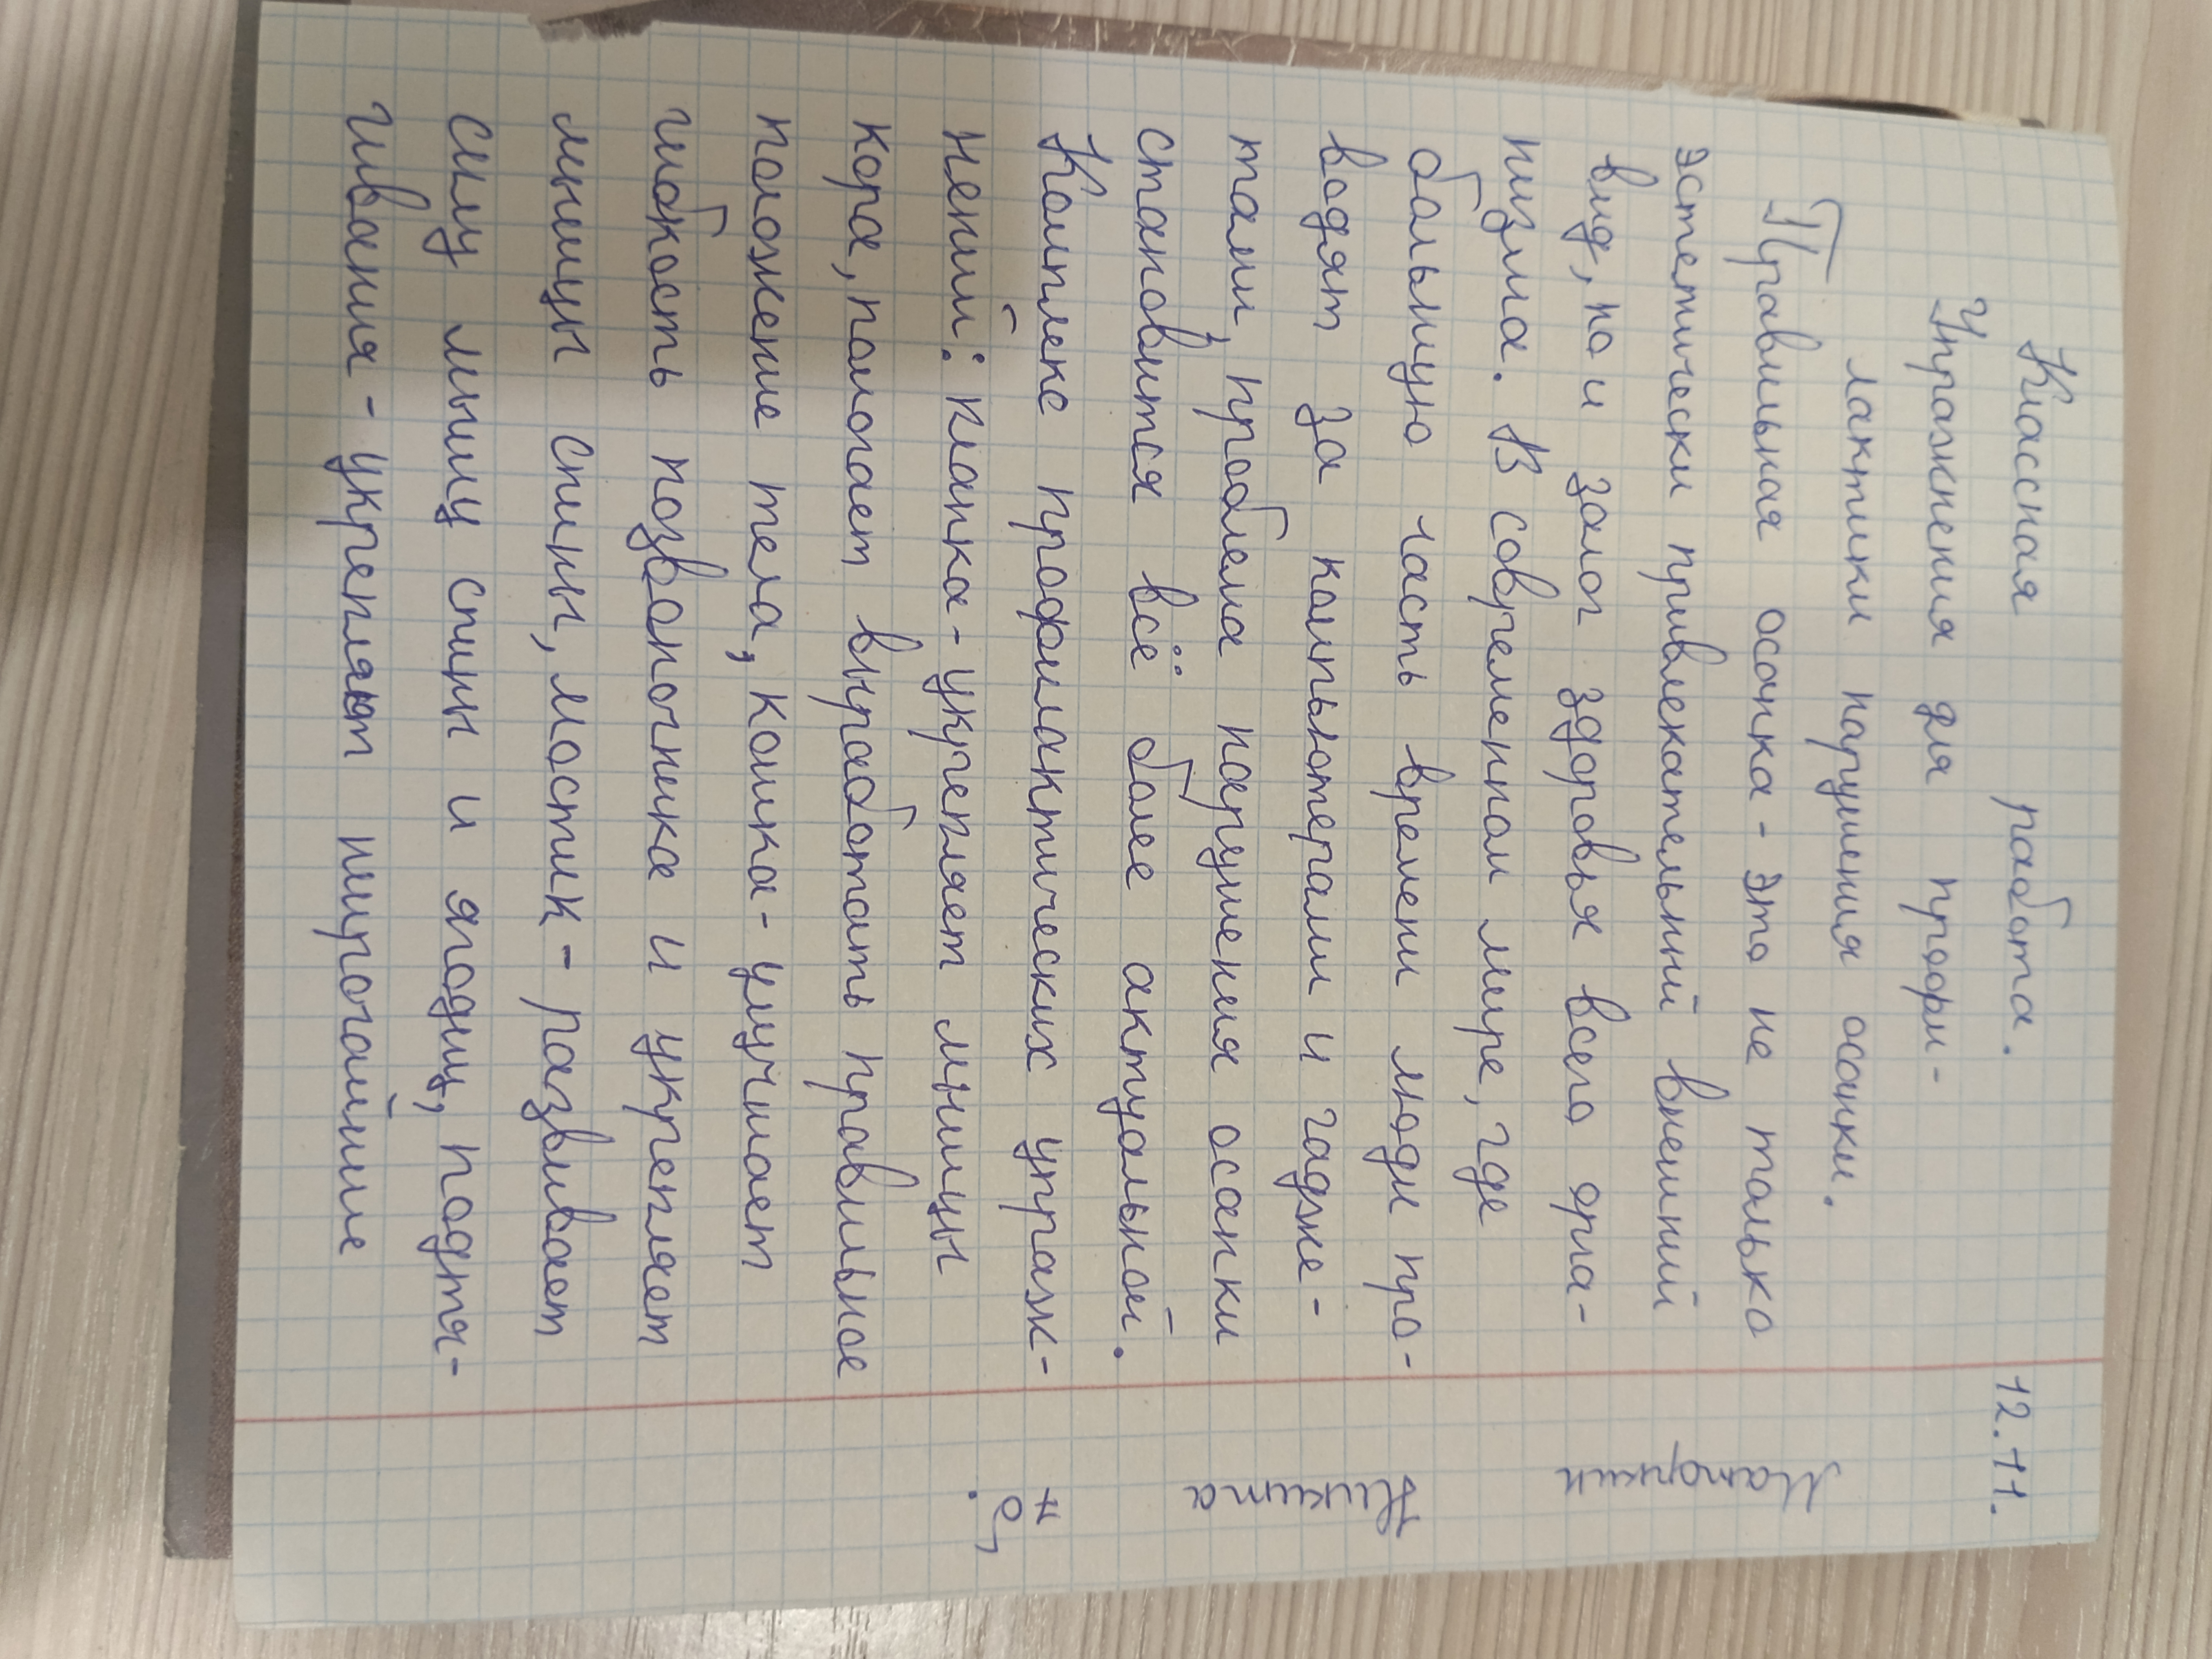 12.11.
Классная работа.
Упражнения для профи-
лактики нарушения осанки.
Правильная осанка - это не только
эстетически привлекательный внешний
вид, но и залог здоровья всего орга-
низма. В современном мире, где
большую часть времени люди про-
водят за компьютерами и гадже-
тами, проблема нарушения осанки
становится всё более актуальной.
Комплекс профилактических упраж-
нений: планка - укрепляет мышцы
кора, помогает выработать правильное
положение тела, кошка - улучшает
гибкость позвоночника и укрепляет
мышцы спины, мостик - развивает
силу мышц спины и ягодиц, подтя-
гивания - укрепляют широчайшие
Никита